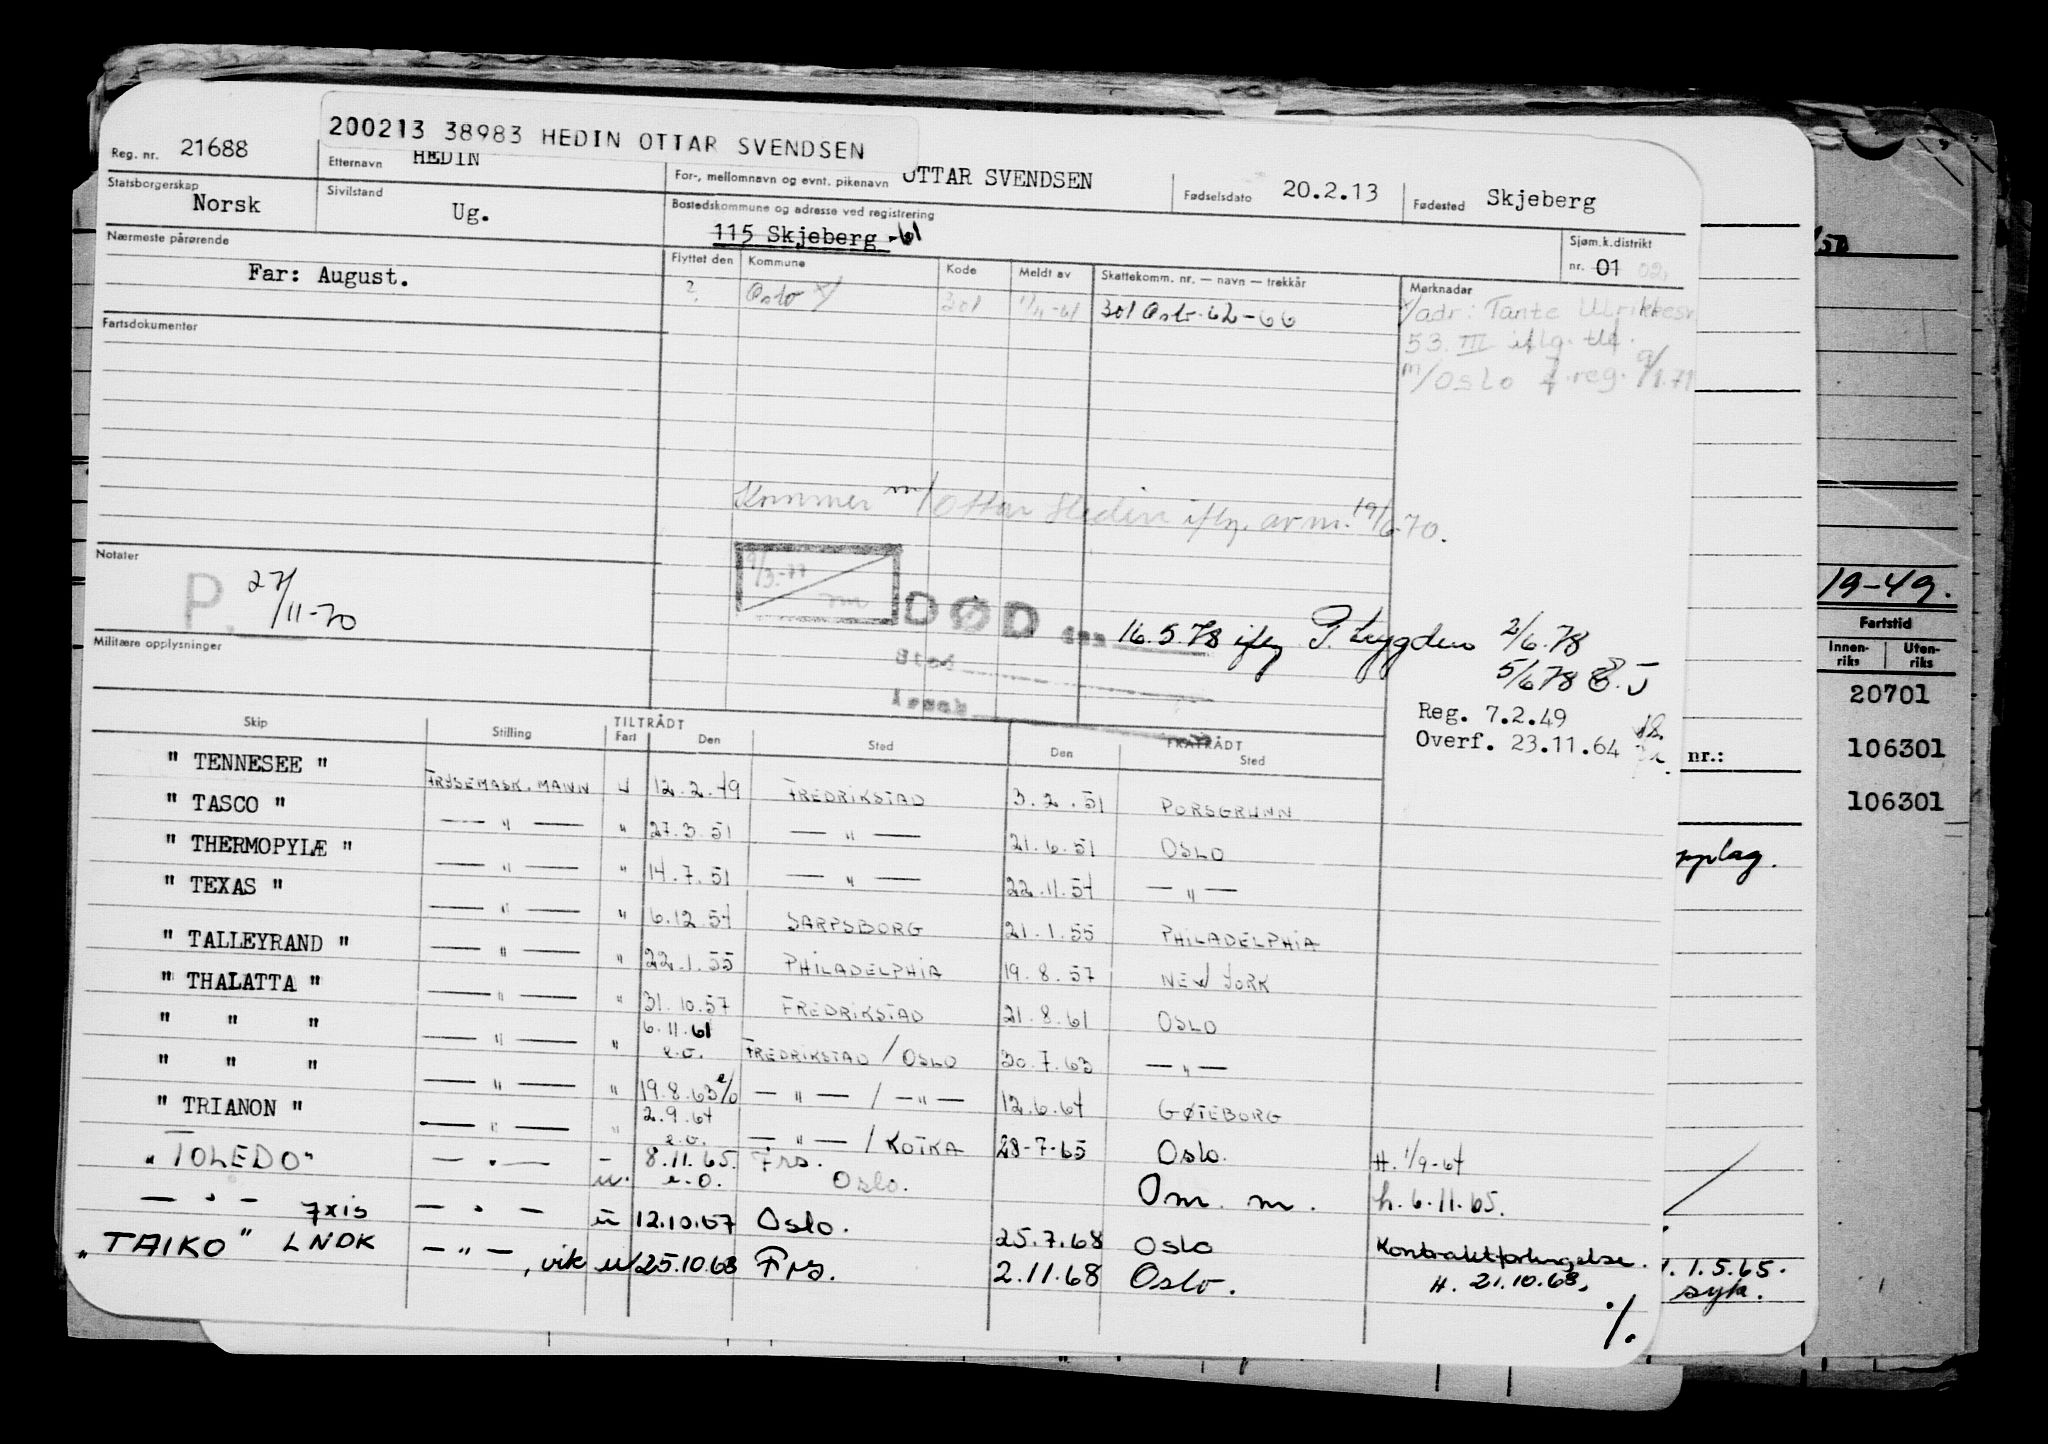 200213 38983 HEDIN OTTAR SVENDSEN
Reg. nr. 21688 Etternavn HEDIN For-, mellomnavn og evnt. pikenavn OTTAR SVENDSEN Fødselsdato 20.2.13 Fødested Skjeberg
Statsborgerskap Norsk Sivilstand Ug. Bostedskommune og adresse ved registrering 115 Skjeberg -61 Sjøm.k.distrikt nr. 01 02.
Nærmeste pårørende Far: August.
Flyttet den Kommune Kode Meldt av Skattekomm. nr. — navn — trekkår Merknader
? Oslo x/ 301 1/11-61 301 Oslo 62-66
x/adr: Tante Ulrikkesv
53 III iflg. tlf.
m/Oslo f.reg. 9/1.71
Fartsdokumenter
Kommer m/ Ottar Hedin iflg. av m. 19/6.70.
Notater
P. 27/11-70
9/3.-77
DØD den 16.5.78 iflg P. trygden 2/6.78
Sted
Årsak
5/678
Militære opplysninger
Reg. 7.2.49
Overf. 23.11.64
Skip Stilling TILTRÅDT Fart Den Sted FRATRÅDT Den Sted
" TENNESEE " FRYSEMASK. MANN U 12.2.49 FREDRIKSTAD 3.2.51 PORSGRUNN
" TASCO " — " — " 27.3.51 — " — 21.6.51 OSLO
" THERMOPYLÆ " — " — " 14.7.51 — " — 22.11.54 — " —
" TEXAS " — " — " 6.12.54 SARPSBORG 21.1.55 PHILADELPHIA
" TALLEYRAND " — " — " 22.1.55 PHILADELPHIA 19.8.57 NEW YORK
" THALATTA " — " — " 31.10.57 FREDRIKSTAD 21.8.61 OSLO
" " " — " — " 6.11.61 e.o. FREDRIKSTAD / OSLO 30.7.63 — " —
" " " — " — " 19.8.63 e/o — " — / — " — 12.6.64 GØTEBORG
" TRIANON " — " — " 2.9.64 e.o. — " — / KOTKA 28-7-65 Oslo. H. 1/9-64
" TOLEDO " — " — u. 8.11.65. e.o. Frs. Oslo. Om. m. h. 6.11.65.
— " — 7xis — " — u 12.10.67 Oslo. 25.7.68 Oslo Kontraktforlengelse.
" TAIKO " LNDK — " —, vik u 25.10.68 Frs. 2.11.68 Oslo. H. 21.10.68.
./.
19-49.
Fartstid
Innen-riks Uten-riks
20701
nr.: 106301
106301
opplag.
1.5.65.
syk.